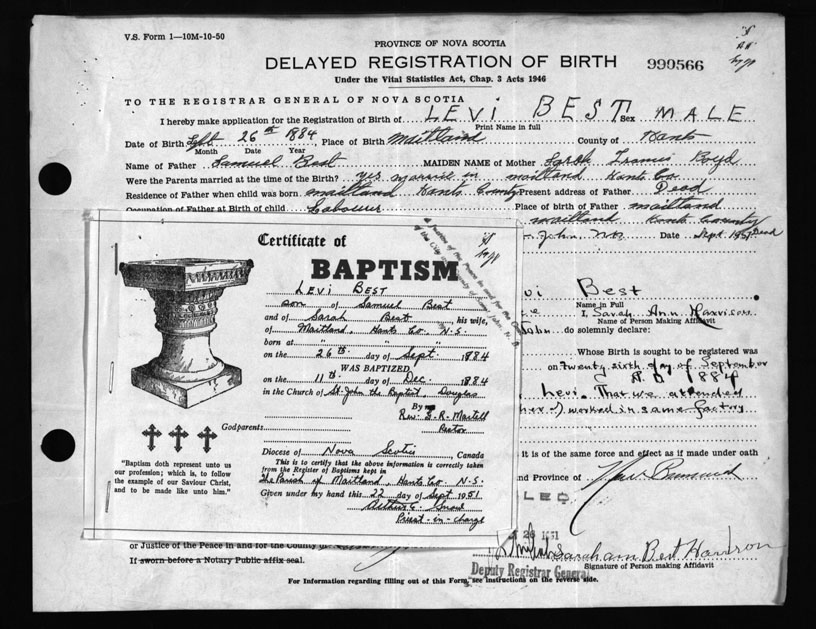 V.S. Form 1—10M-10-50
PROVINCE OF NOVA SCOTIA
DELAYED REGISTRATION OF BIRTH
990566
Under the Vital Statistics Act, Chap. 3 Acts 1946
TO THE REGISTRAR GENERAL OF NOVA SCOTIA
I hereby make application for the Registration of Birth of LEVI BEST Sex MALE
Print Name in full
Date of Birth Sept 26th 1884, Place of Birth Maitland County of Hants
Month Date Year
Name of Father Samuel Best MAIDEN NAME of Mother Sarah Francis Boyd
Were the Parents married at the time of Birth? yes married in maitland Hants Co.
Residence of Father when child was born maitland Hants County Present address of Father Dead
Occupation of Father at Birth of child Labourer Place of birth of Father maitland
maitland Hants County
John, N.B. Date Sept. 1951 Dead
Certificate of
BAPTISM
LEVI BEST
son of Samuel Best
and of Sarah Best, his wife,
of Maitland, Hants Co. N.S.
born at " " "
on the 26th day of Sept. 1884
WAS BAPTIZED
on the 11th day of Dec. 1884
in the Church of St. John the Baptist, Douglas
By
Rev. G. R. Martell
Rector
Godparents
Diocese of Nova Scotia, Canada
This is to certify that the above information is correctly taken
from the Register of Baptisms kept in
The Parish of Maitland, Hants Co. N.S.
Given under my hand this 22 day of Sept 1951
Priest-in-charge
"Baptism doth represent unto us
our profession; which is, to follow
the example of our Saviour Christ,
and to be made like unto him."
vi Best
Name in Full
I, Sarah Ann Harrison
Name of Person Making Affidavit
John do solemnly declare:
Whose Birth is sought to be registered was
on twenty sixth day of September
A.D. 1884
Levi. That we attended
worked in same factory
it is of the same force and effect as if made under oath
nd Province of New Brunswick
LED
26 1951
or Justice of the Peace in and for the County of
Signature of Person making Affidavit
If sworn before a Notary Public affix seal.
Deputy Registrar General
For Information regarding filling out of this Form, see instructions on the reverse side.